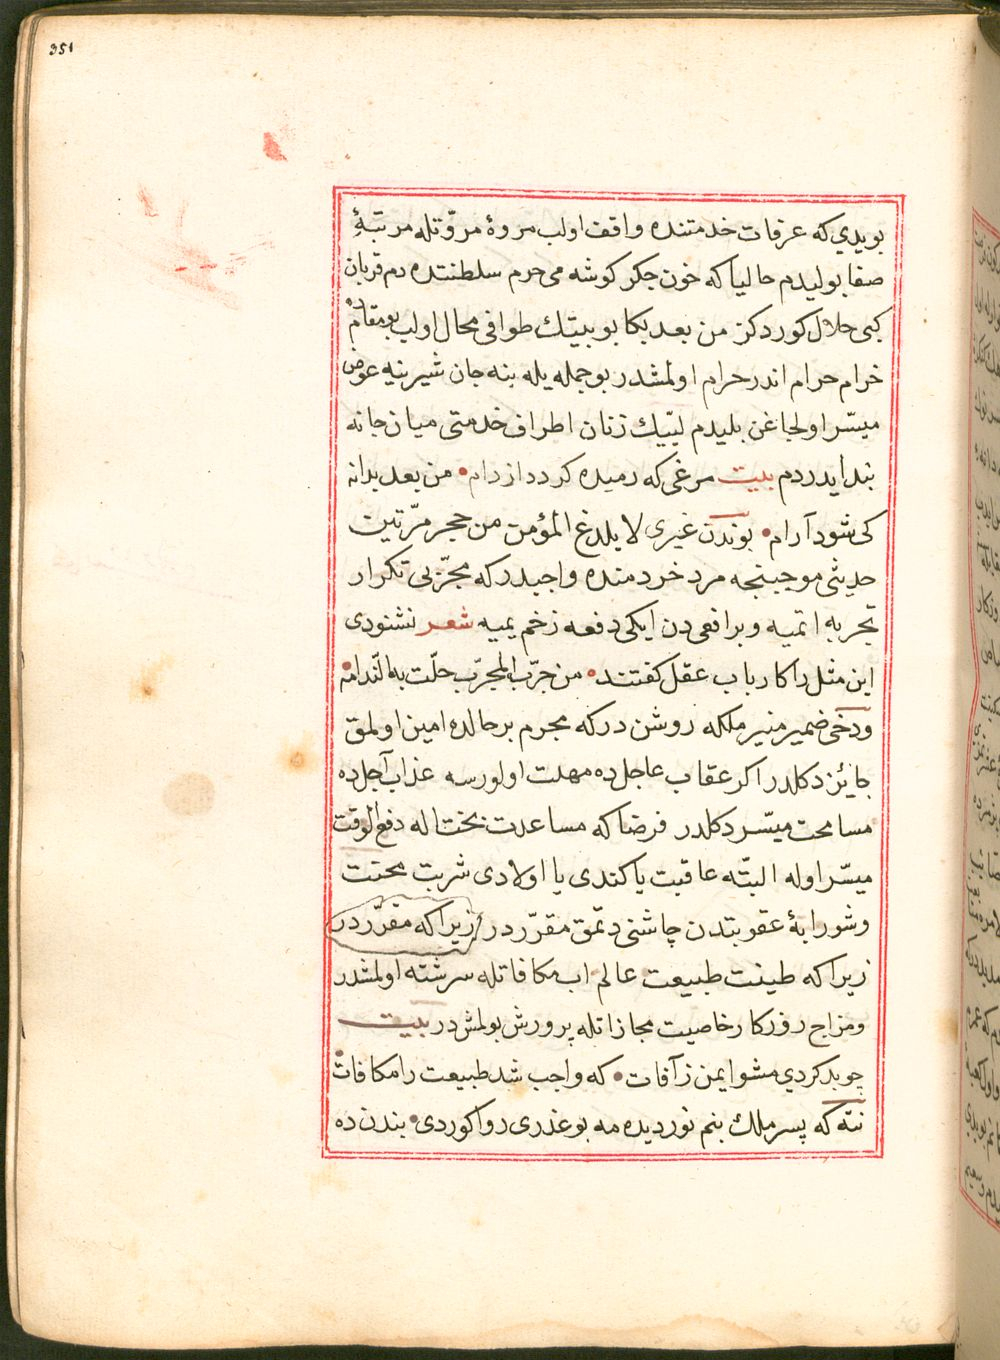 351
بويدي كه عرفات خدمتنده واقف اولب مروۀ مروّتله مرتبۀ
صفا بوليدم حاليا كه خون جكر كوشه مى حرم سلطنتده دم قربان
كبى حلال كوردكز من بعد بكا بو بيتك طوافى محال اولب بو مقامده
خرام حرام اندر حرام اولمشدر بو جمله يله ينه جان شيرينيه عوض
ميسّر اولجاغن بليدم لبّيك زنان اطراف خدمتى ميان جانه
بند ايدردم بيت مرغى كه رميده كردد از دام • من بعد بدانه
كى شود آرام • بوندن غيرى لا يلدغ المؤمن من حجر مرّتين
حديثى موجبنجه مرد خردمنده واجبدر كه مجرّبى تكرار
تجربه اتميه و بر افعى دن ايكى دفعه زخم يميه شعر نشنودى
اين مثل را كارباب عقل كفتند • من جرّب المجرّب حلّت به الندامه •
و دخى ضمير منير ملكله روشن در كه مجرم بر حالده امين اولمق
جايز دكلدر اكر عقاب عاجل ده مهلت اولورسه عذاب آجل ده
مسامحت ميسّر دكلدر فرضا كه مساعدت بختاله دفع الوقت
ميسّر اوله البتّه عاقبت يا كندى يا اولادى شربت محنت
و شورابۀ عقوبتدن چاشنى دتمق مقرّر در زيرا كه مقرّر در
زيرا كه طينت طبيعت عالم اب مكافاتله سرشته اولمشدر
و مزاج روزكار خاصيت مجازاتله پرورش بولمش در بيت
چو بد كردي مشو ايمن ز آفات • كه واجب شد طبيعت را مكافات •
نته كه پسر ملك بنم نور ديده مه بو غدرى روا كوردى • بندن ده